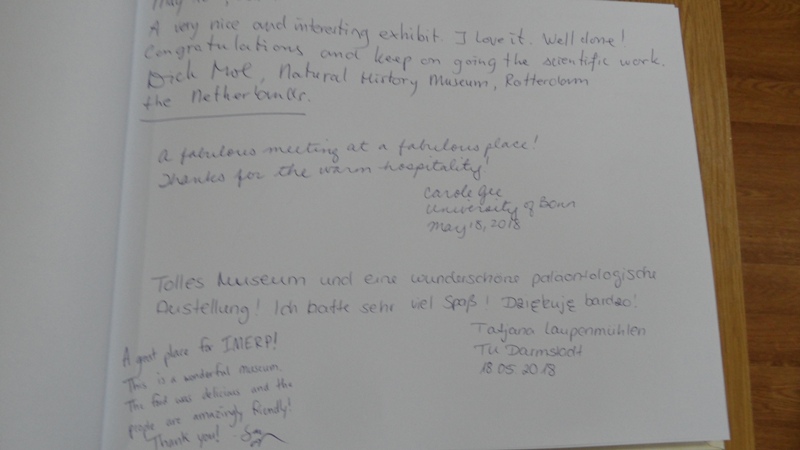 A very nice and interesting exhibit. I love it. Well done!
Congratulations and keep on going the scientific work.
Dick Mol, Natural History Museum, Rotterdam
the Netherlands.
A fabulous meeting at a fabulous place!
Thanks for the warm hospitality!
Carole Gee
University of Bonn
May 18, 2018
Tolles Museum und eine wunderschöne paläontologische
Austellung! Ich hatte sehr viel Spaß! Dziękuję bardzo!
Tatjana Laupenmühlen
TU Darmstadt
18.05.2018
A great place for IMERP!
This is a wonderful museum.
The food was delicious and the
people are amazingly friendly!
Thank you!